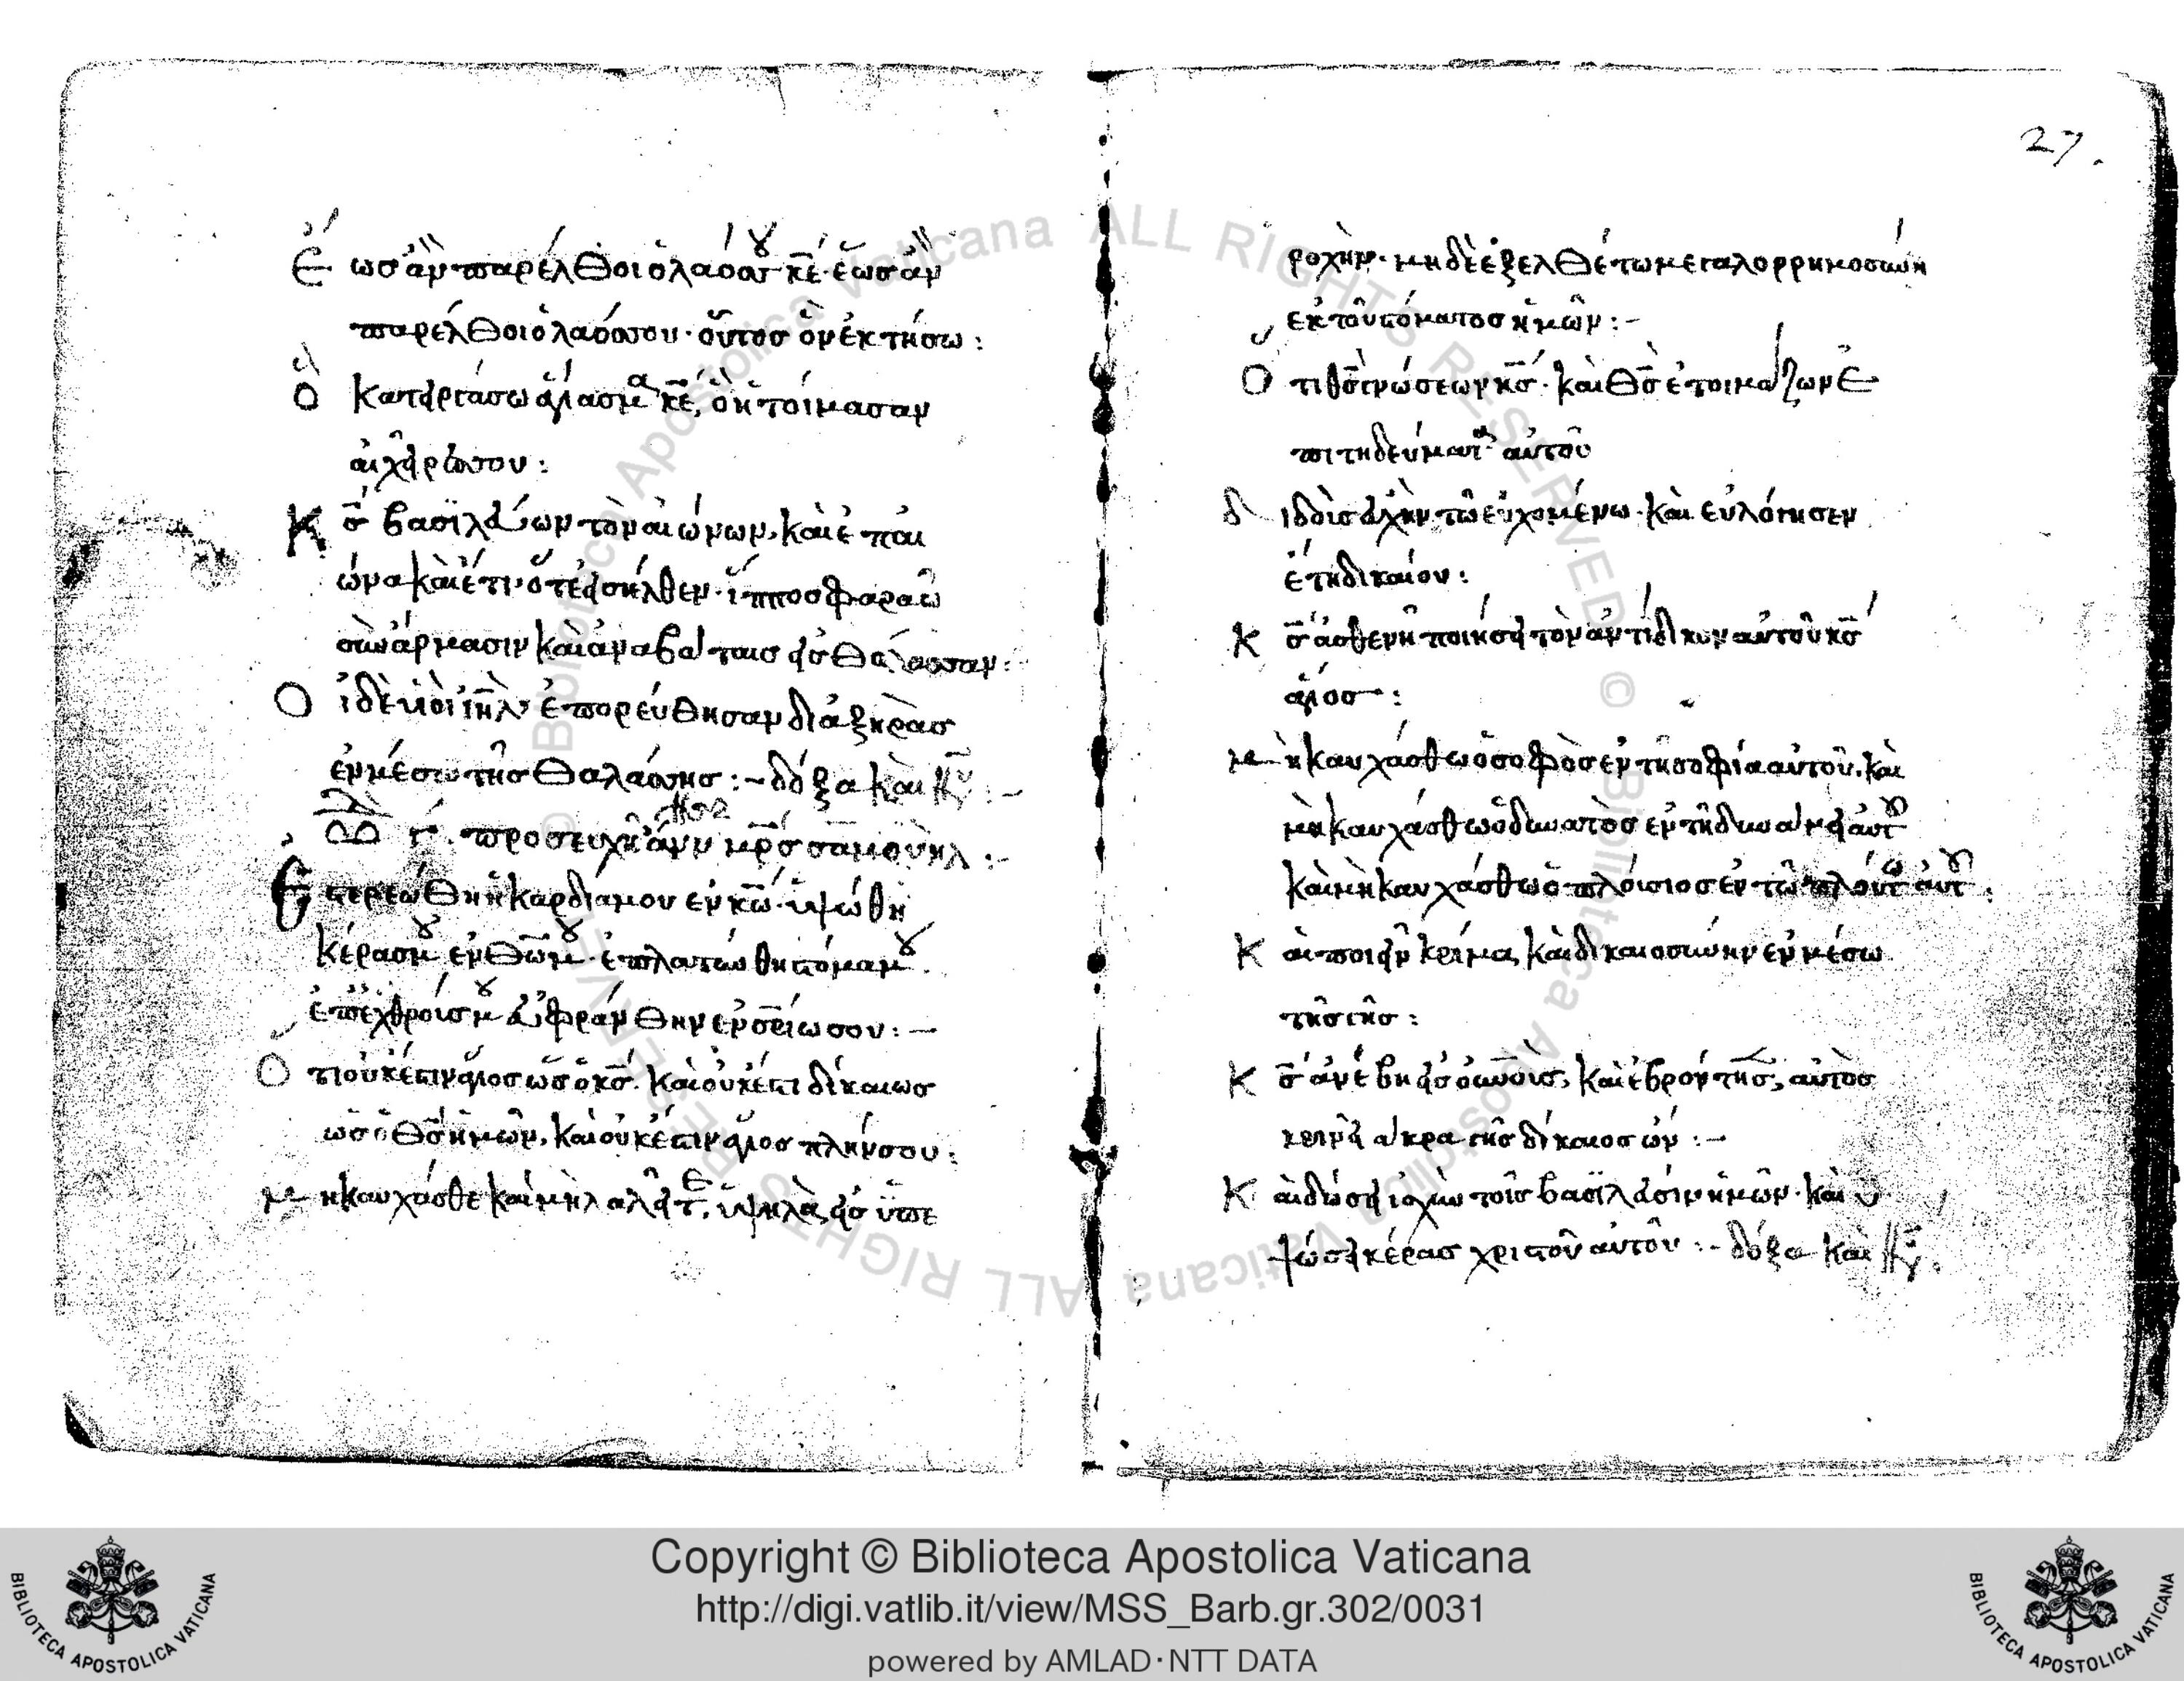 Ἕως ἂν παρέλθοι ὁ λαός σου κε̅· ἕως ἂν
παρέλθοι ὁ λαός σου· οὗτος ὃν ἐκτήσω:
Ὃ κατειργάσω ἁγίασμα κε̅, ὃ ἡτοίμασαν
αἱ χεῖρες σου:
Κς̅ βασϊλεύων τὸν αἰώνων, καὶ ἐπαι
ώνα καὶ ἔτι· ὅτε εἰσῆλθεν ἵππος φαραὼ
σὺν ἅρμασιν καὶ ἀναβάταις εἰς θάλασσαν:
Οἱ δὲ υἱοὶ ιη̅λ· ἐπορεύθησαν διὰ ξηρᾶς
ἐν μέσω τῆς θαλάσσης :– δόξα καὶ νῦν :–
ὠδὴ γ. προσευχὴ ἄννης μρ̅ς σαμουὴλ :–
Ἐστερεώθη ἡ καρδία μου ἐν κω̅· ὑψώθη
κέρας μου ἐν θω̅ μου· ἐπλατύνθη στόμα μου
ἐπ' ἐχθρούς μου εὐφράνθην ἐν σρι̅ω σου: –
Ὅτι οὐκ ἔστιν ἅγιος ὡς ὁ κς̅. καὶ οὐκ ἔστι δίκαιως
ὡς ὁ θς̅ ἡμῶν, καὶ οὐκ ἔστιν ἅγιος πλήν σου:
Μὴ καυχᾶσθε καὶ μὴ λαλεῖτε, ὑψηλὰ, εἰς ὑπε
27.
ροχὴν· μηδὲ ἐξελθέτω μεγαλορρημοσύνη
ἐκ τοῦ στόματος ἡμῶν :–
Ὅτι θς̅ γνώσεων κς̅· καὶ θς̅ ἑτοιμάζων ἐ
πιτηδεύματα αὐτοῦ
διδοὺς εὐχὴν τῶ εὐχομένω· καὶ εὐλόγησεν
ἔτη δικαίου:
Κς̅ ἀσθενῆ ποιήσει τὸν ἀντίδικον αὐτοῦ κς̅
ἅγιος :
μὴ καυχάσθω ὁ σοφὸς ἐν τῆ σοφία αὐτοῦ, καὶ
μὴ καυχάσθω ὁ δυνατὸς ἐν τῆ δυνάμει αὐτοῦ
καὶ μὴ καυχάσθω ὁ πλούσιος ἐν τῶ πλούτω αὐτοῦ:
Καὶ ποιεῖν κρίμα, καὶ δικαιοσύνην ἐν μέσω
τῆς γῆς :
Κς̅ ἀνέβη εἰς οὐνοὺς, καὶ ἐβρόντησεν, αὐτὸς
κρινεῖ ἄκρα γῆς δίκαιος ὤν :–
Καὶ δώσει ἰσχὺν τοῖς βασϊλεῦσιν ἡμῶν· καὶ ὑ
ψώσει κέρας χριστοῦ αὐτοῦ :– δόξα καὶ νῦν.
Copyright © Biblioteca Apostolica Vaticana
http://digi.vatlib.it/view/MSS_Barb.gr.302/0031
powered by AMLAD·NTT DATA
BIBLIOTECA APOSTOLICA VATICANA
BIBLIOTECA APOSTOLICA VATICANA
© Biblioteca Apostolica Vaticana ALL RIGHTS RESERVED
© Biblioteca Apostolica Vaticana ALL RIGHTS RESERVED